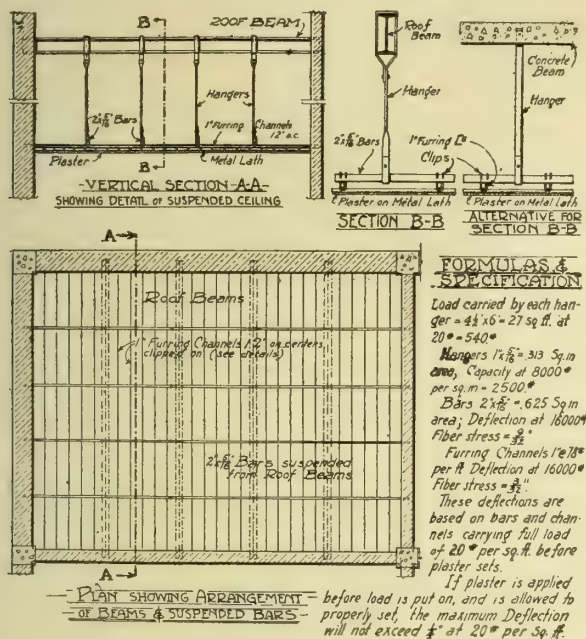 B
ROOF BEAM
Hangers
2"x5/16" Bars
1" Furring Channels
12" o.c.
Plaster
B
Metal Lath
-VERTICAL SECTION-A-A-
SHOWING DETAIL OF SUSPENDED CEILING
Roof
Beam
Hanger
2"x5/16" Bars
1" Furring Cs
Clips
Plaster on Metal Lath
SECTION B-B
Concrete
Beam
Hanger
Plaster on Metal Lath
ALTERNATIVE FOR
SECTION B-B
A
Roof Beams
1" Furring Channels 1'2" on centers
clipped on (see details)
2"x5/16" Bars suspended
from Roof Beams
A
-PLAN SHOWING ARRANGEMENT-
-OF BEAMS & SUSPENDED BARS-
FORMULAS &
SPECIFICATION
Load carried by each han-
ger = 4½'x6' = 27 sq. ft. at
20# = 540.#
Hangers 1"x5/16" = .313 Sq.in
area, Capacity at 8000#
per sq.in = 2500.#
Bars 2"x5/16" = .625 Sq in
area; Deflection at 16000#
Fiber stress = 9/32"
Furring Channels 1"@
per ft Deflection at 16000#
Fiber stress = 3/32".
These deflections are
based on bars and chan-
nels carrying full load
of 20# per sq.ft. before
plaster sets.
If plaster is applied
before load is put on, and is allowed to
properly set, the maximum Deflection
will not exceed at 20# per Sq. ft.